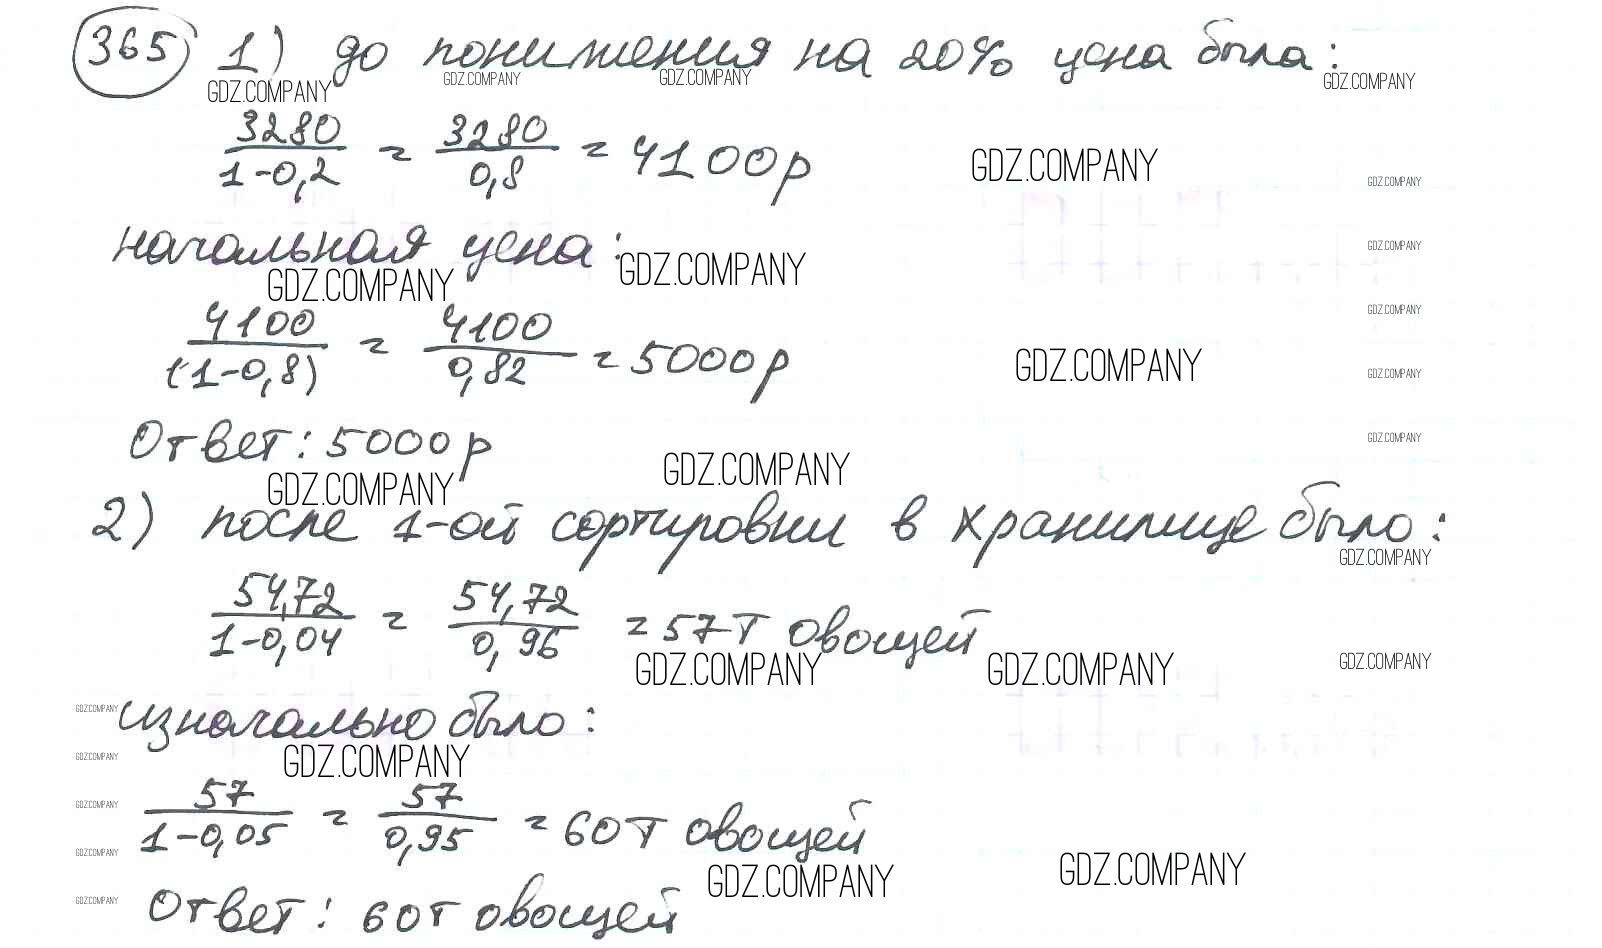 365 1) до понижения на 20% цена была:
GDZ.COMPANY GDZ.COMPANY GDZ.COMPANY GDZ.COMPANY
3280/1-0,2 = 3280/0,8 = 4100р
GDZ.COMPANY GDZ.COMPANY
начальная цена:
GDZ.COMPANY
GDZ.COMPANY GDZ.COMPANY
GDZ.COMPANY
4100/(1-0,8) = 4100/0,82 = 5000р
GDZ.COMPANY GDZ.COMPANY
Ответ: 5000р
GDZ.COMPANY
GDZ.COMPANY GDZ.COMPANY
2) после 1-ой сортировки в хранилище было:
GDZ.COMPANY
54,72/1-0,04 = 54,72/0,96 = 57т овощей
GDZ.COMPANY GDZ.COMPANY GDZ.COMPANY
GDZ.COMPANY
изначально было:
GDZ.COMPANY GDZ.COMPANY
GDZ.COMPANY
57/1-0,05 = 57/0,95 = 60т овощей
GDZ.COMPANY
GDZ.COMPANY GDZ.COMPANY
GDZ.COMPANY
Ответ: 60т овощей